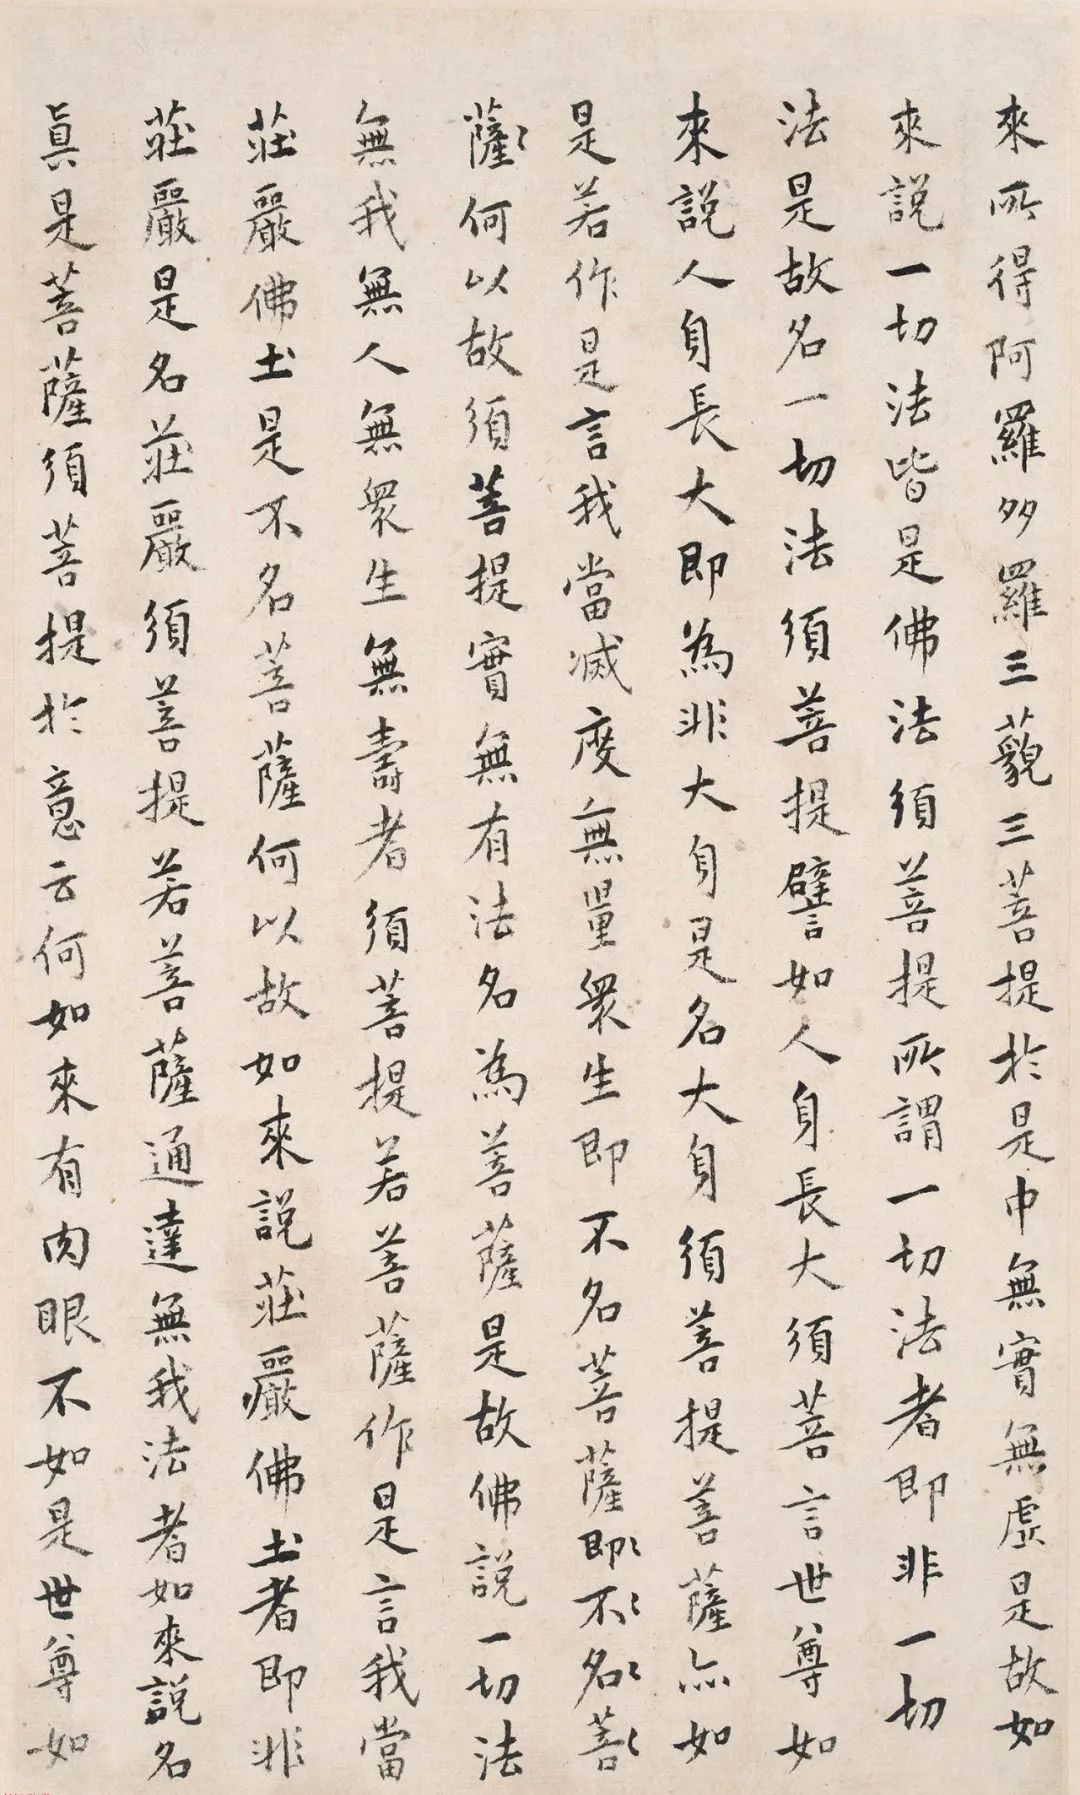 來所得阿羅多羅三藐三菩提於是中無實無虛是故如
來說一切法皆是佛法須菩提所謂一切法者即非一切
法是故名一切法須菩提譬如人身長大須菩言世尊如
來說人身長大即為非大身是名大身須菩提菩薩亦如
是若作是言我當滅度無量衆生即不名菩薩即不名菩
薩何以故須菩提實無有法名為菩薩是故佛說一切法
無我無人無衆生無壽者須菩提若菩薩作是言我當
莊嚴佛土是不名菩薩何以故如來說莊嚴佛土者即非
莊嚴是名莊嚴須菩提若菩薩通達無我法者如來說名
真是菩薩須菩提於意云何如來有肉眼不如是世尊如